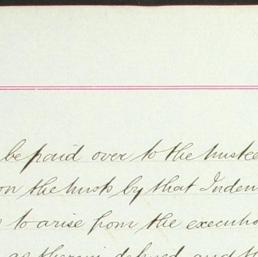 be paid over to the trustee
on the trusts by that Inden
to arise from the executio
as therein defined and th